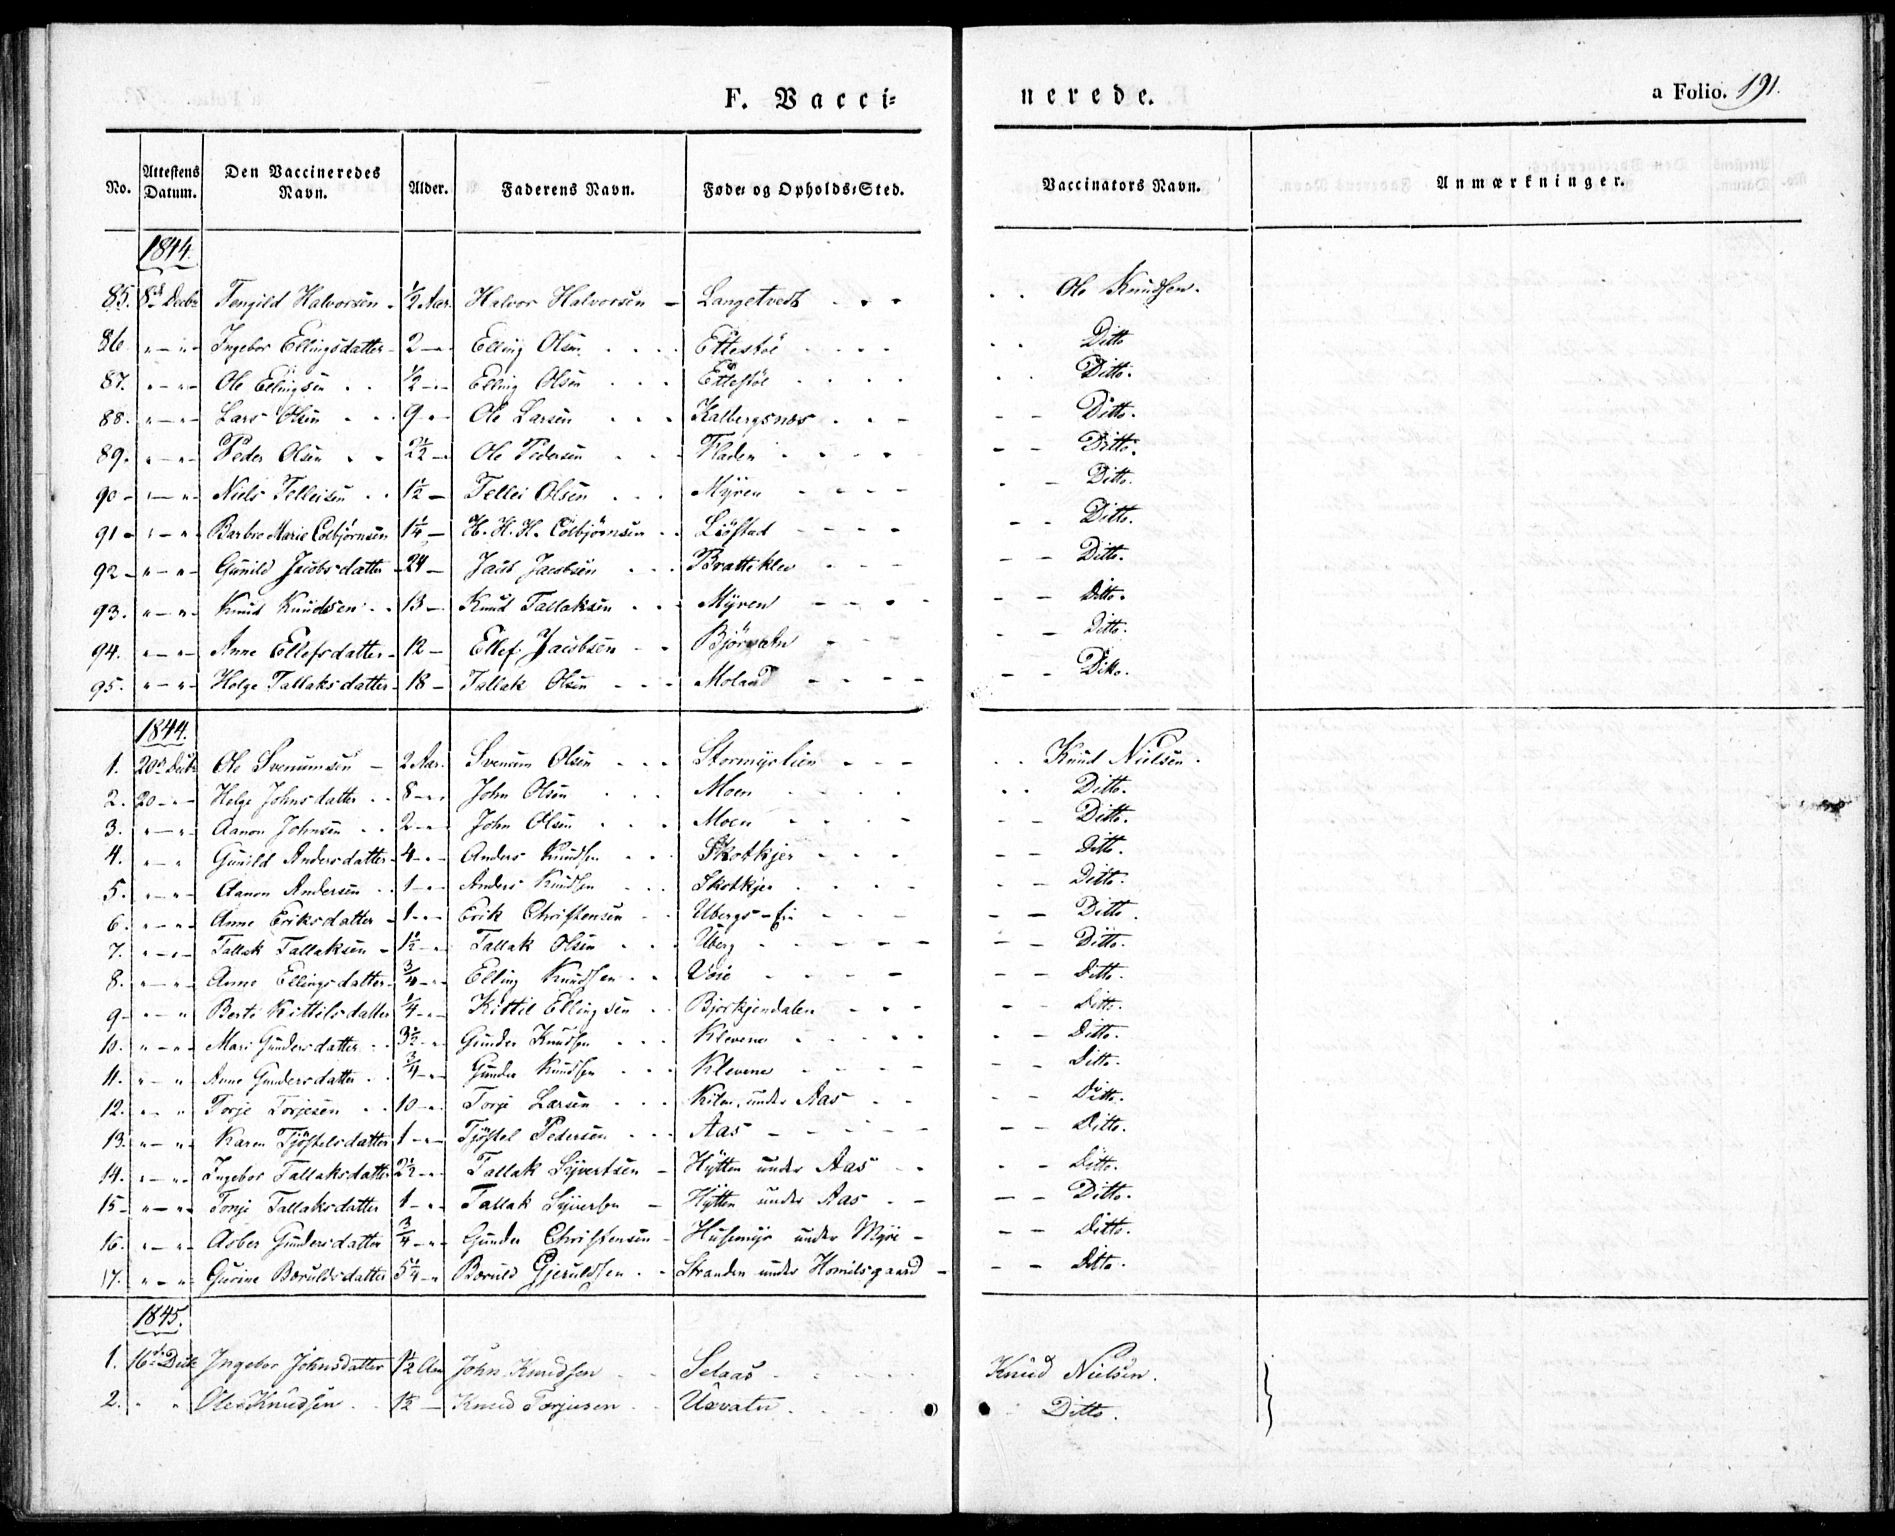 F. Vacci=
nerede.
a Folio. 191.
No. Attestens Datum. Den Vaccineredes Navn. Alder. Faderens Navn. Føde- og Opholds-Sted. Vaccinators Navn. Anmærkninger.
1844.
85. 8d Decbr Halvorsen - ½ Aar. Halvor Halvorsen - Langetvedt - - Ole Knudsen.
86. " - " - Ingebor Ellingsdatter - 2 - " - Elling Olsen - - Ettestöl - - Ditto
87. " - " - Ole Ellingsen - - ½ - " - Elling Olsen - - Ettestöl - - Ditto.
88. " - " - Lars Olsen - - 9 - " - Ole Larsen - - Kalbergsnæs - - Ditto.
89. " - " - Peder Olsen - - 2½ - Ole Pedersen - - Fladen - - Ditto.
90 - " - " - Niels Telleisen - - 1½ - Tellei Olsen - - Myren - - Ditto.
91 - " - " - Barbro Marie Colbjørnsen 1¼ - H. H. H. Colbjørnsen - - Liöstad - - Ditto.
92 - " - " - Gunild Jacobsdatter - 24 - Jacob Jacobsen - - Bratteklev - - Ditto.
93. " - " - Knud Knudsen - - 13 - Knud Tallaksen - - Myren - - Ditto.
94. " - " - Anne Ellefsdatter - 12 - Ellef Jacobsen - - Björvatn - Ditto.
95. " - " - Helge Tallaksdatter - 18 - Tallak Olsen - - Moland - - Ditto.
1844.
1. 20d Decbr Ole Svenumsen - 2 Aar. Svenum Olsen - - Stormyrlien - - Knud Nielsen.
2. 20 - " - Helge Johnsdatter - - 8 - " - John Olsen - - Moen - - Ditto.
3. " - " - Aanon Johnsen - - 2 - " - John Olsen - - Moen - - Ditto.
4. " - " Gunild Andersdatter - 4 - " - Anders Knudsen - - Skotkjer - - Ditto.
5. " - " - Aanon Andersen - - 1 - " - Anders Knudsen - - Skotkjer - - Ditto.
6. " - " - Anne Eriksdatter - 1 - " - Erik Christensen - - Ubergs-Eie - - Ditto.
7. " - " - Tallak Tallaksen - 1½ - " Tallak Olsen - - Uberg - - Ditto.
8. " - " - Anne Ellingsdatter - ¾ - " - Elling Knudsen - - Voie - - Ditto.
9 - " - " Berte Kittilsdatter ¼ - " - Kittil Ellingsen - - Bjorkjendalen - - Ditto.
10. " - " - Mari Gundersdatter - - 3½ - " Gunder Knudsen - - Klevene - - Ditto.
11. " - " Anne Gundersdatter - - ¾ - " - Gunder Knudsen - - Klevene - - Ditto.
12. " - " Torje Torjesen - - 10 - " - Torje Larsen - - Kilen under Aas - - Ditto.
13. " - " - Karen Tjöstelsdatter 1 - " - Tjöstel Pedersen - - Aas - - Ditto.
14. " - " - Ingebor Tallaksdatter 2½ - " - Tallak Syvertsen - Hytten under Aas - - Ditto.
15 - " - " - Tonje Tallaksdatter 1 - " - Tallak Syversen - Hytten under Aas - - Ditto.
16. " - " - Asber Gundersdatter ¾ - " - Gunder Christensen - Husemyr under Myre - Ditto.
17. " - " Gurine Boruldsdatter 5¼ - " Boruld Gjeruldsen - - Stranden under Homilsgaard - Ditto.
1845.
1. 16de Decbr Ingebor Johnsdatter 1½ Aar John Knudsen - - Selaas - - Knud Nielsen.
2. " " Ole Knudsen - - 1½ - Knud Torjusen - - Uvvatn - - Ditto.